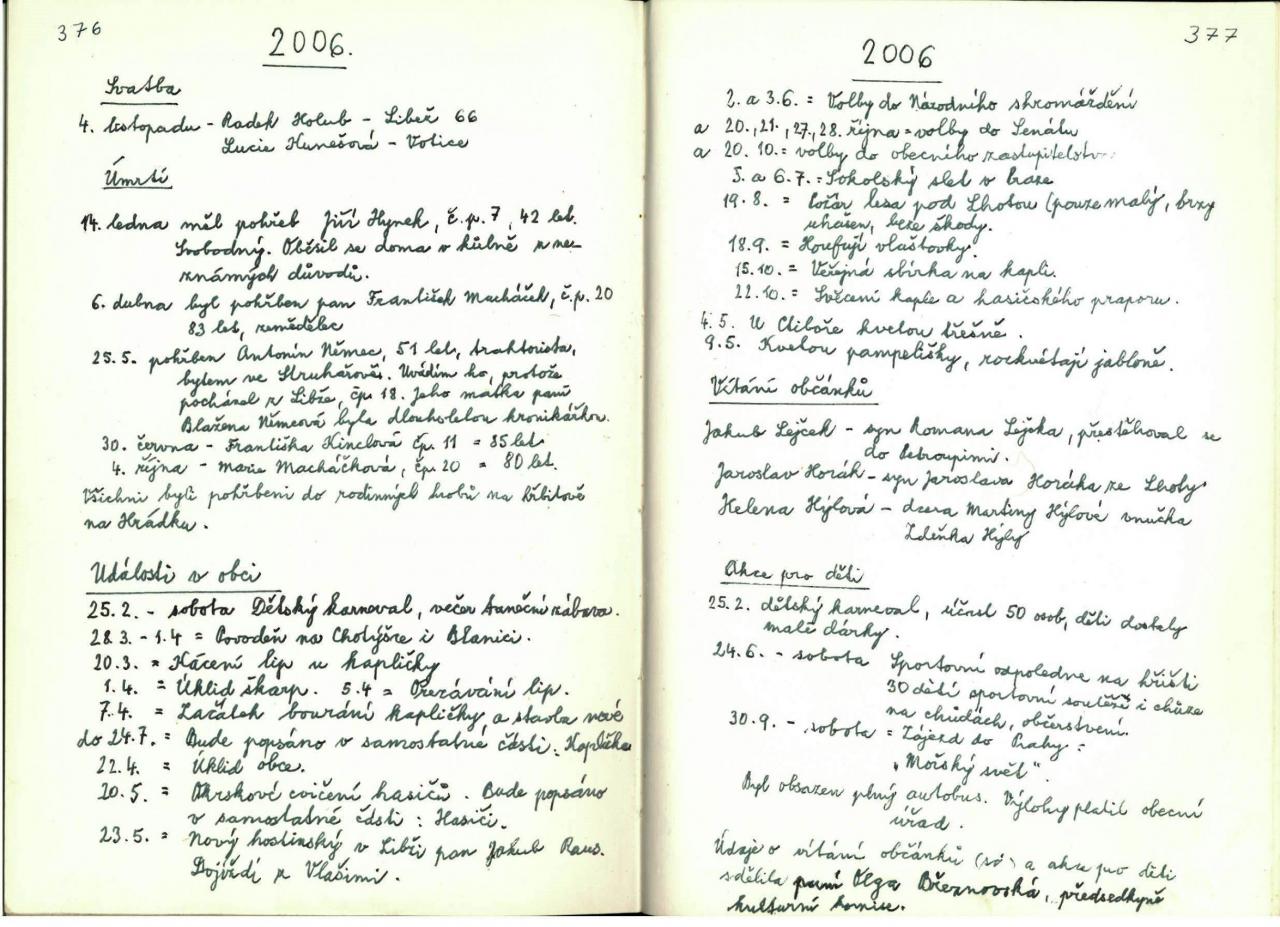 376
2006.
Svatba
4. listopadu - Radek Holub - Libež 66
Lucie Hunešová - Votice
Úmrtí
14. ledna měl pohřeb Jiří Hynek, č.p. 7, 42 let.
Svobodný. Oběsil se doma v kůlně z ne-
známých důvodů.
6. dubna byl pohřben pan František Macháček, č.p. 20
83 let, zemědělec
25.5. pohřben Antonín Němec, 51 let, traktorista,
bytem ve Struhařově. Uvádím ho, protože
pocházel z Libže, čp. 18. Jeho matka paní
Blažena Němcová byla dlouholetou kronikářkou.
30. června - Františka Kinclová čp. 11 = 85 let
4. října - Marie Macháčková, čp. 20 = 80 let.
Všichni byli pohřbeni do rodinných hrobů na hřbitově
na Hrádku.
Události v obci
25.2. - sobota Dětský karneval, večer taneční zábava.
28.3. - 1.4 = Povodeň na Chotýšce i Blanici.
20.3. = Kácení lip u kapličky
1.4. = Úklid škarp. 5.4 = Ořezávání lip.
7.4. = Začátek bourání kapličky a stavba nové
do 24.7. = Bude popsáno v samostatné části: Kaplička
22.4. = Úklid obce.
20.5. = Okrskové cvičení hasičů. Bude popsáno
v samostatné části: Hasiči.
23.5. = Nový hostinský v Libži pan Jakub Raus.
Dojíždí z Vlašimi.
377
2006
2. a 3.6. = Volby do Národního shromáždění
a 20., 21., 27., 28. října = volby do Senátu
a 20.10. = volby do obecního zastupitelstv
5. a 6.7. = Sokolský slet v Praze
19.8. = Požár lesa pod Lhotou (pouze malý, brzy
uhašen, beze škody.
18.9. = Houfují vlaštovky.
15.10. = Veřejná sbírka na kapli.
22.10. = Svěcení kaple a hasičského praporu.
4.5. U Ctiboře kvetou třešně.
9.5. Kvetou pampelišky, rozkvétají jabloně.
Vítání občánků
Jakub Lejček - syn Romana Lejčka, přestěhoval se
do Petroupimi.
Jaroslav Horák - syn Jaroslava Horáka ze Lhoty
Helena Hýlová - dcera Martiny Hýlové vnučka
Zdeňka Hýly
Akce pro děti
25.2. dětský karneval, účast 50 osob, děti dostaly
malé dárky.
24.6. - sobota Sportovní odpoledne na hřišti
30 dětí sportovní soutěže i chůze
na chůdách, občerstvení.
30.9. - sobota = Zájezd do Prahy:
„Mořský svět".
Byl obsazen plný autobus. Výlohy platil obecní
úřad.
Údaje o vítání občánků a akce pro děti
sdělila paní Olga Březnovská, předsedkyně
kulturní komise.